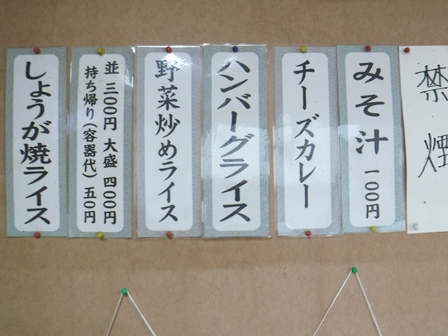 禁煙
みそ汁 一〇〇円
チーズカレー
ハンバーグライス
野菜炒めライス
並 三〇〇円 大盛 四〇〇円
持ち帰り(容器代)五〇円
しょうが焼ライス